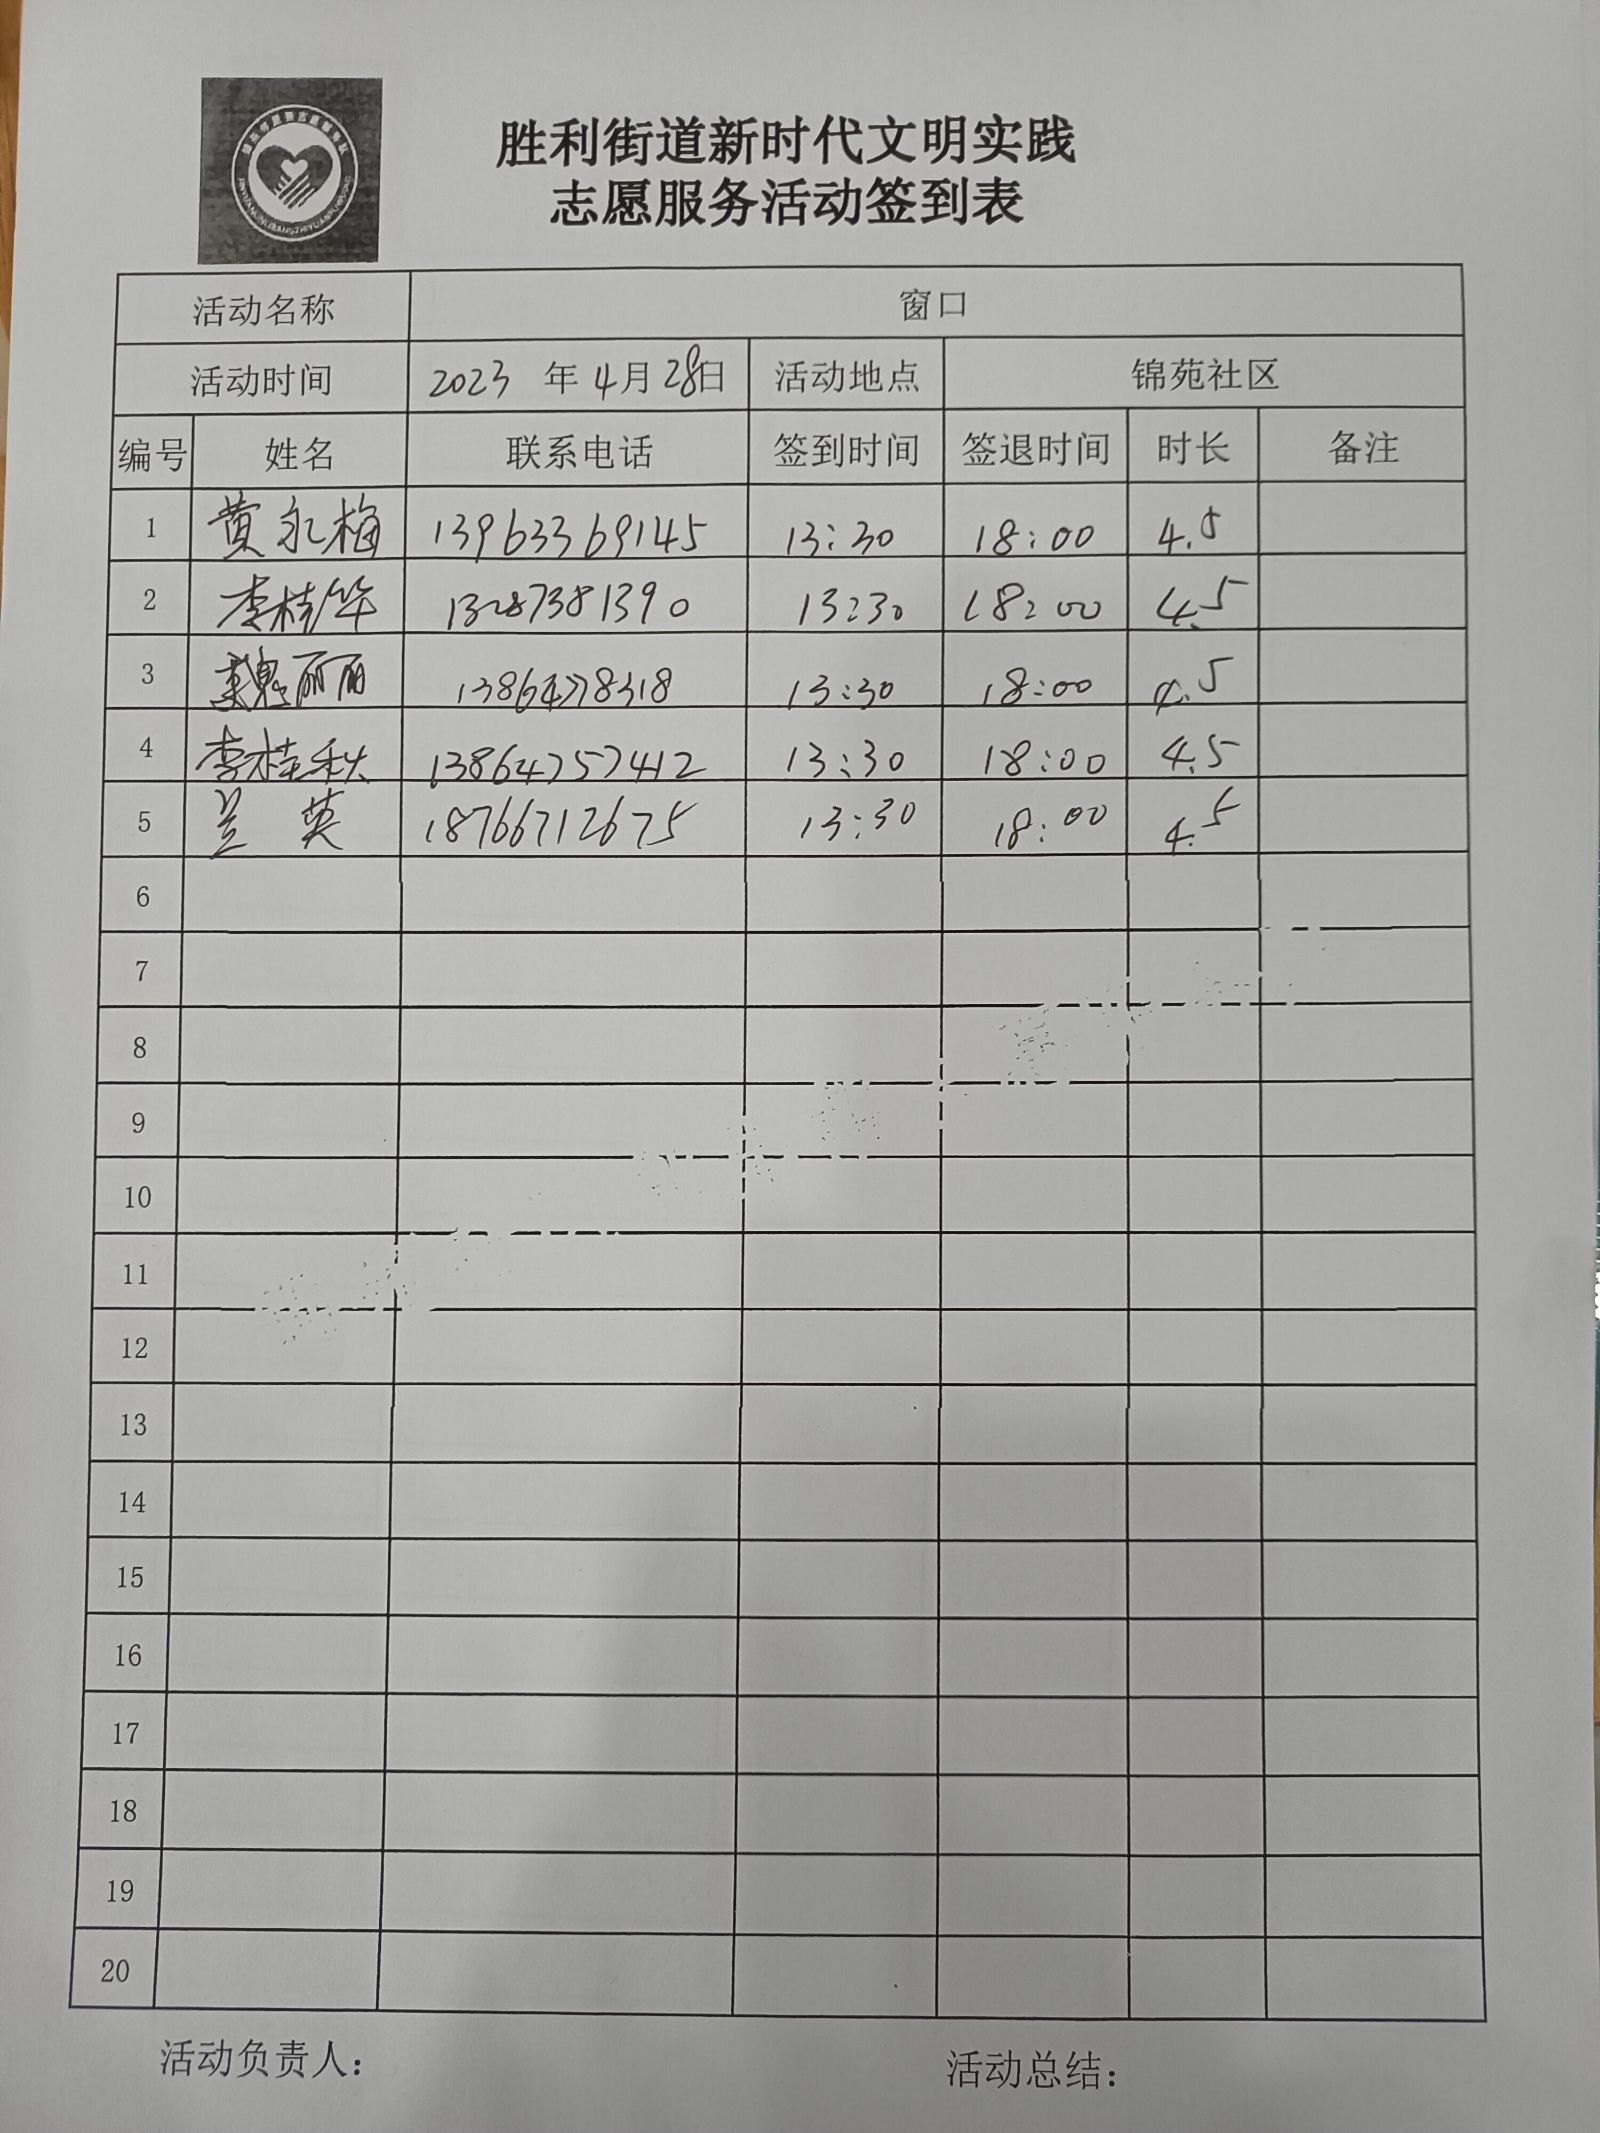 胜利街道新时代文明实践
志愿服务活动签到表
活动名称 窗口
活动时间 2023 年 4月 28日 活动地点 锦苑社区
编号 姓名 联系电话 签到时间 签退时间 时长 备注
1 黄永梅 13963369145 13:30 18:00 4.5
2 李桂华 13287381390 13:30 18:00 4.5
3 魏丽丽 13864778318 13:30 18:00 4.5
4 李桂秋 13864757412 13:30 18:00 4.5
5 兰英 18766712675 13:30 18:00 4.5
6
7
8
9
10
11
12
13
14
15
16
17
18
19
20
活动负责人： 活动总结：